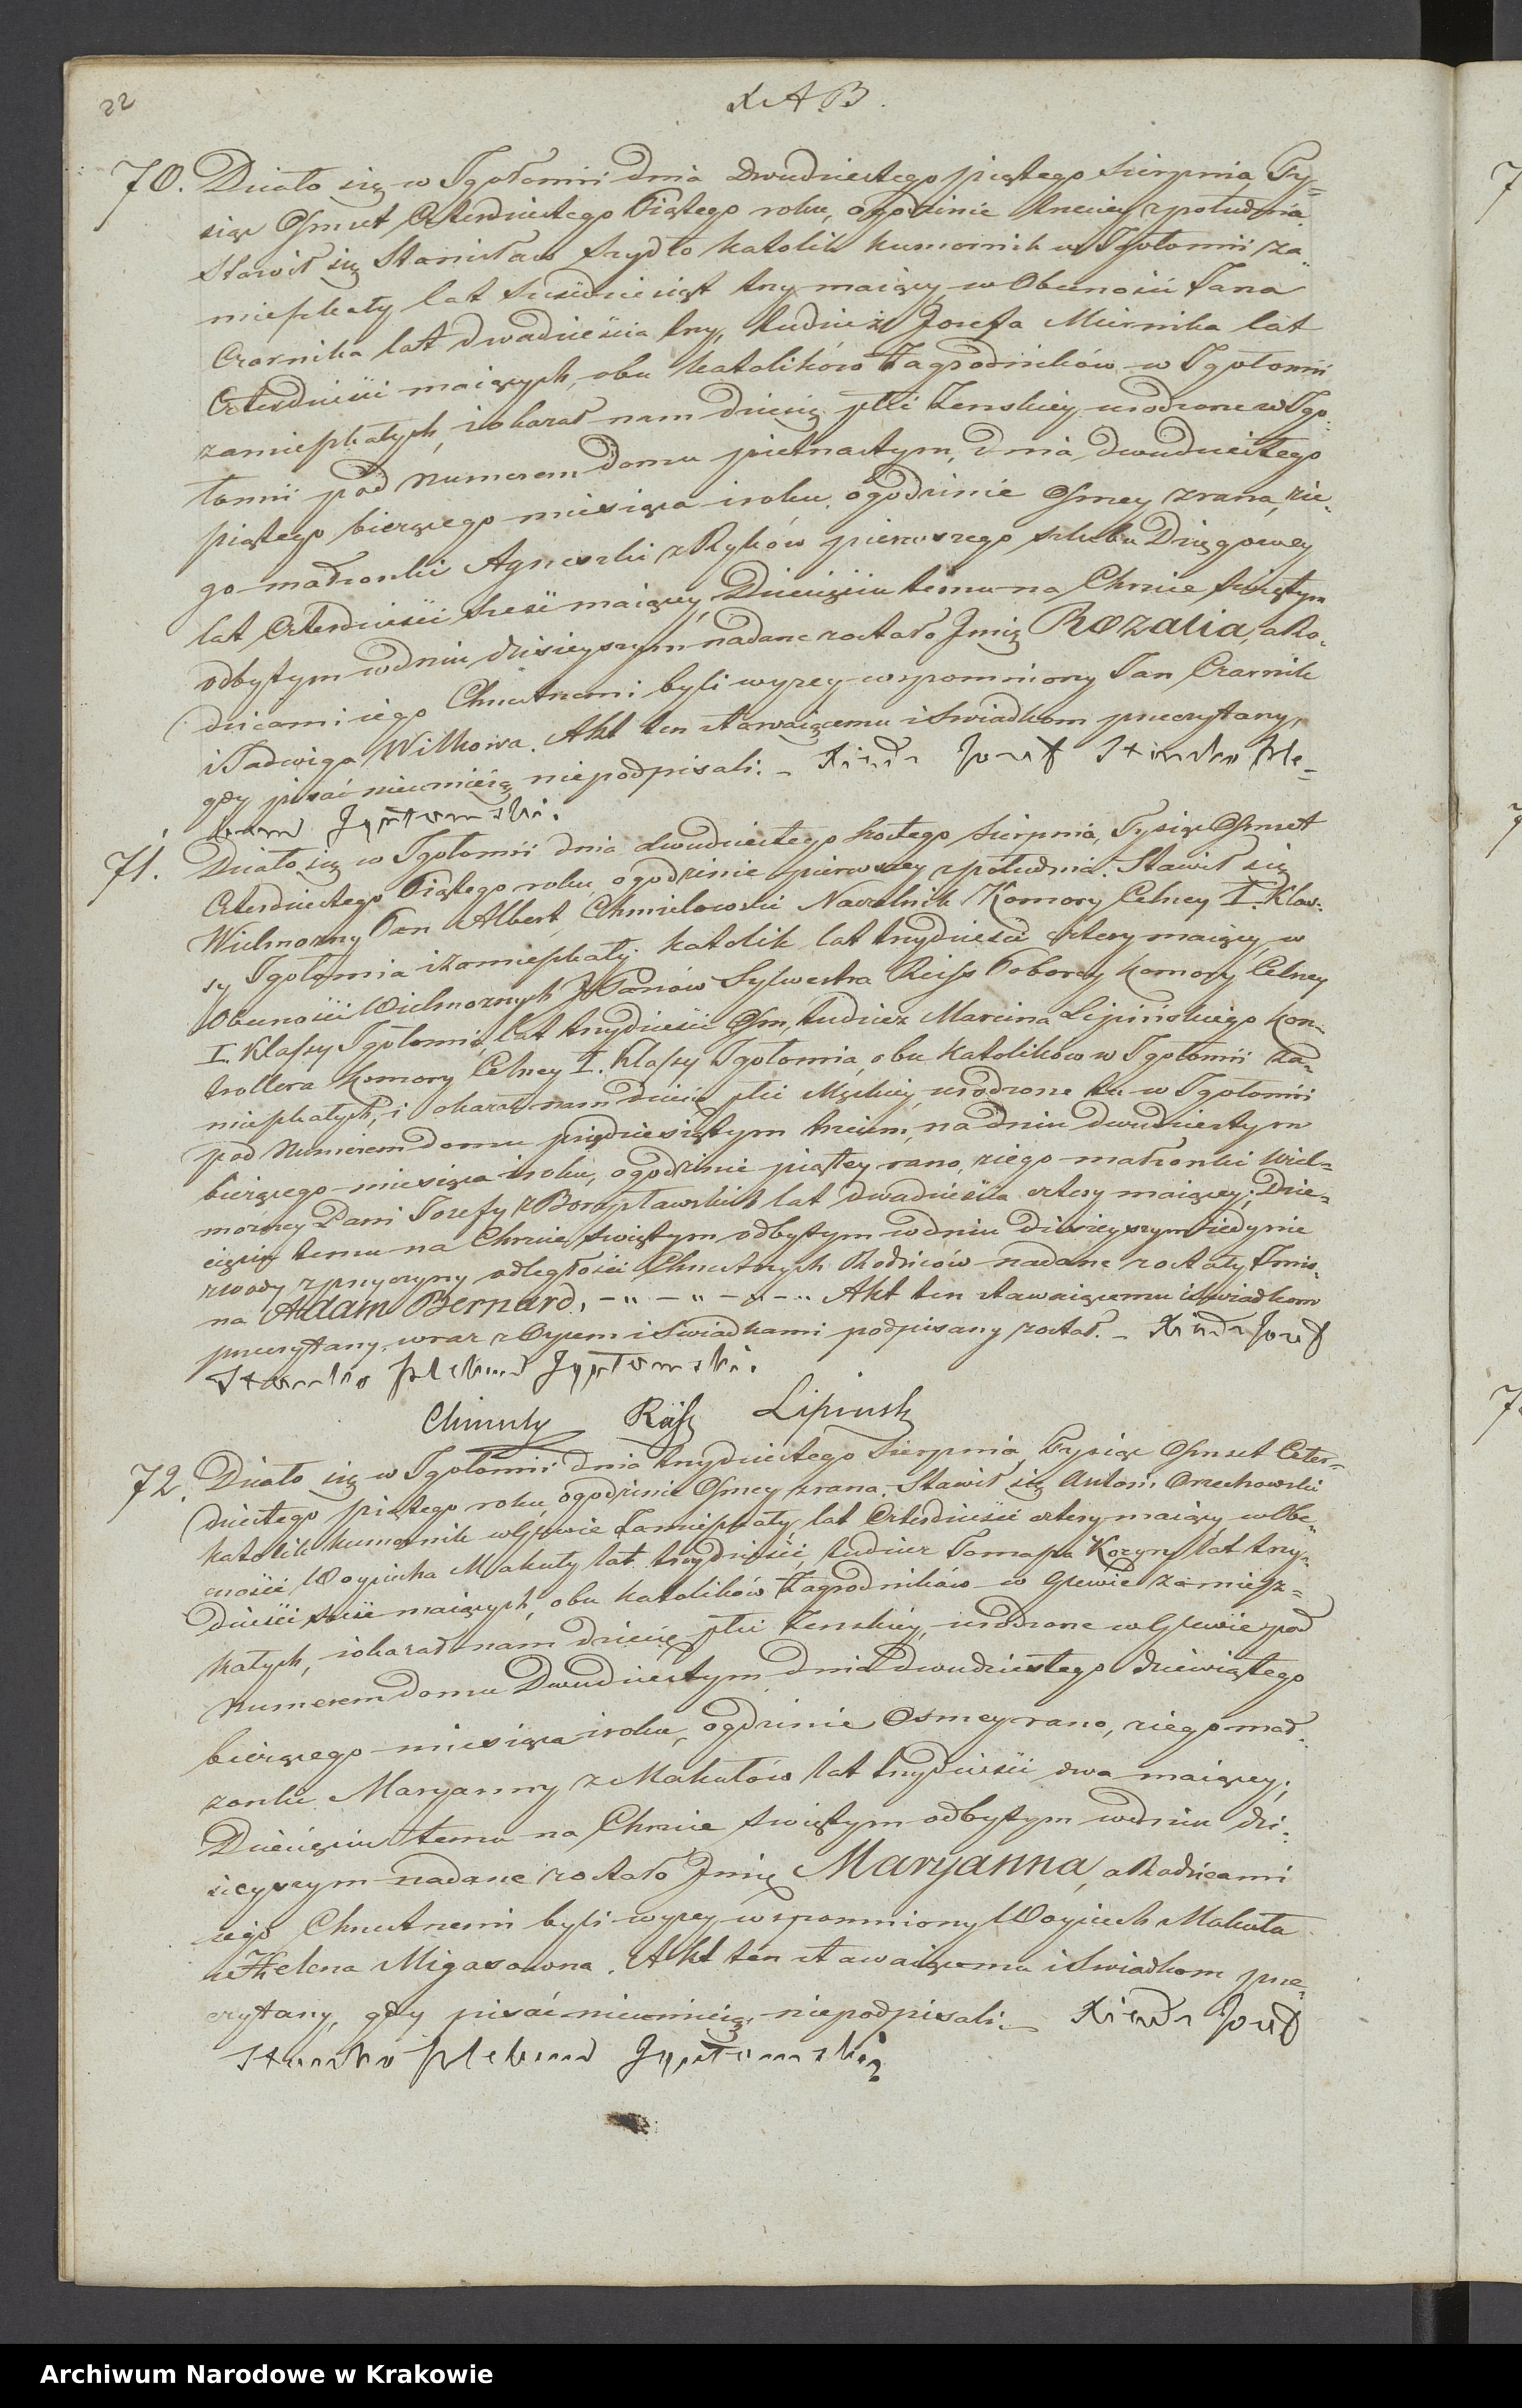 22
X A B.
70. Działo się w Igołomii dnia Dwudziestego piątego Sierpnia, Ty=
siąc Osmset Czterdziestego Piątego roku, ogodzinie trzeciey zpołudnia.
Stawił się Stanisław Szydło katolik kumornik w Igołomii za=
mieszkały lat sześćdziesiąt trzy maiący, w Obecności Jana
Czarnika lat dwadzieścia trzy, tudzież Jozefa Miernika lat
Czterdzieści maiących, obu katolików Zagrodników w Igołomii
zamieszkałych, i okazał nam dziecię płci Zenskiey, urodzone w Igo=
łomii pod Numerem Domu pietnastym, dnia dwudziestego
piątego bierzącego miesiąca iroku, ogodzinie Osmey zrana, zie=
go małzonki Agnieszki z Ryków pierwszego szlubu
lat Czterdzieści sześć maiącey, Dziecięciu temu na Chrzcie świętym
odbytym wdniu dzisieyszym nadane zostało Jmię Rozalia, aRo=
dzicami iego Chrzestnemi byli wyzey wspomniony Jan Czarnik
i Jadwiga Wilkowa. Akt ten stawaiącemu iSwiadkom przeczytany,
gdy pisać nieumieią niepodpisali. - Xiądz Jozef Ple=
ban Igołomski.
71. Działo się w Igołomii dnia dwudziestego szostego Sierpnia, Tysiąc Osmset
Czterdziestego Piątego roku, ogodzinie pierwszey zpołudnia. Stawił się
Wielmozny Pan Albert Chmielowski Naczelnik Komory Celney I. Klas=
sy Igołomia izamieszkały. katolik, lat trzydzieści cztery maiący, w
Obecności Wielmoznych JPanów Sylwestra Reiss Poborcy Komory Celney
I. Klassy Igołomia, lat trzydzieści Osm, tudziez Marcina Lipińskiego Kon=
trollera Komory Celney I. Klassy Igołomia, obu katolików w Igołomii za=
mieszkałych, i okazał nam dziecię płci Męskiey, urodzone tu w Igołomii
pod Numerem domu pięćdziesiątym trzecim, na dniu dwudziestym
bierzącego miesiąca iroku, ogodzinie piątey rano, ziego małzonki Wiel=
mozney Pani Jozefy z lat dwadzieścia cztery maiącey; Dzie=
cięciu temu na Chrzcie świętym odbytym wdniu dzisieyszym iedynie
zwody zprzyczyny odległości Chrzestnych Rodziców nadane zostały Imio=
na Adam Bernard. - " - " - " - " Akt ten stawaiącemu iSwiadkom
przeczytany, wraz z Oycem iSwiadkami podpisany został. - Xiądz Jozef
Pleban Igołomski.
Reiss Lipinski
72. Działo się w Igołomii dnia trzydziestego Sierpnia, Tysiąc Osmset Czter=
dziestego piątego roku, ogodzinie Osmey zrana. Stawił się Antoni Orzechowski
katolik kumornik wGlewie Zamieszkały, lat Czterdzieści cztery maiący, wObe=
cności Woyciecha Makuły lat trzydzieści, tudziez Tomasza Koczyry lat trzy=
dzieści sześć maiących, obu katolików Zagrodników w Glewie zamiesz=
kałych, iokazał nam dziecię płci Zenskiey, urodzone wGlewie pod
Numerem domu Dwudziestym dnia dwudziestego dziewiątego
bierzącego miesiąca iroku, ogdzinie Osmey rano, ziego mał=
zonki Maryanny z Makułów lat trzydzieści dwa maiącey;
Dziecięciu temu na Chrzcie świętym odbytym wdniu dzi=
sieyszym nadane zostało Jmię Maryanna, aRodzicami
iego Chrzestnemi byli wyzey wspomniony Woyciech Makuła
i Helena Migasowna. Akt ten stawaiącemu iSwiadkom prze=
czytany, gdy pisać nieumieią, niepodpisali. - Xiądz Jozef
Pleban Igołomski
Archiwum Narodowe w Krakowie